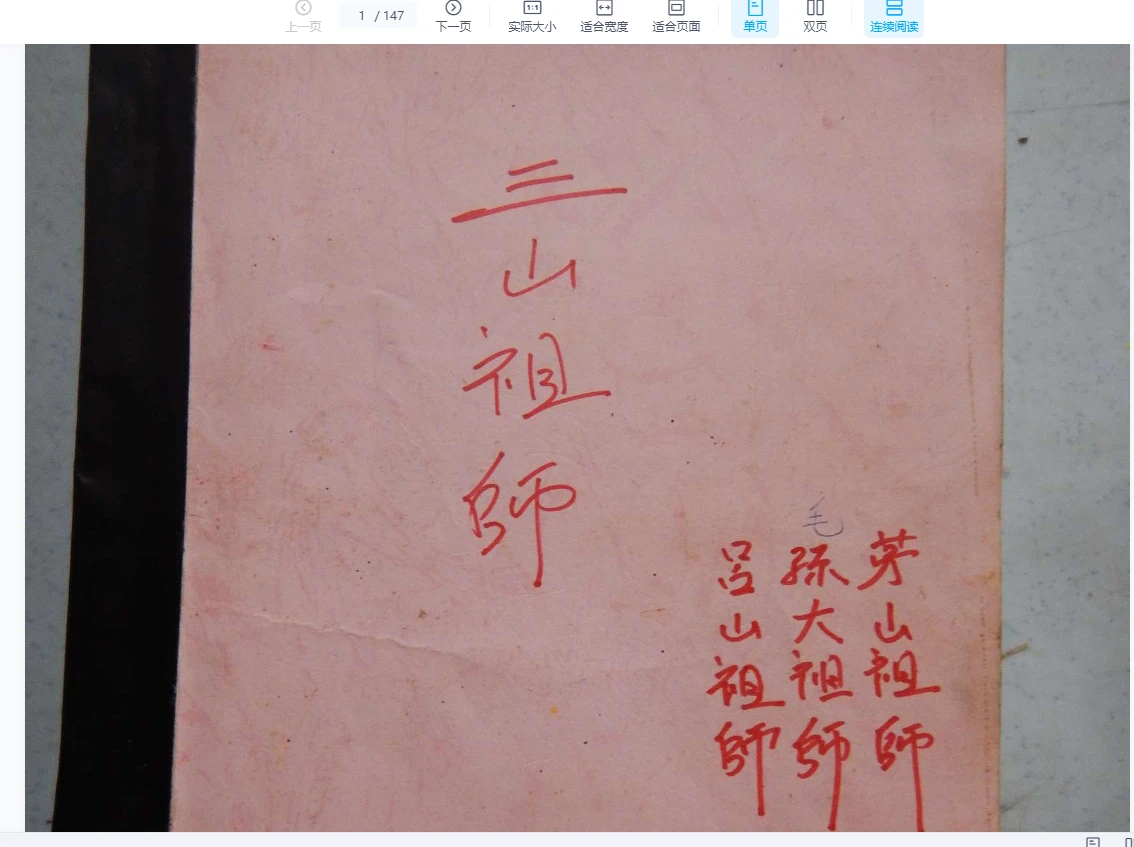 上一页
1 / 147
下一页
1:1
实际大小
适合宽度
适合页面
单页
双页
连续阅读
三山祖師
茅山祖師
毛
孫大祖師
呂山祖師